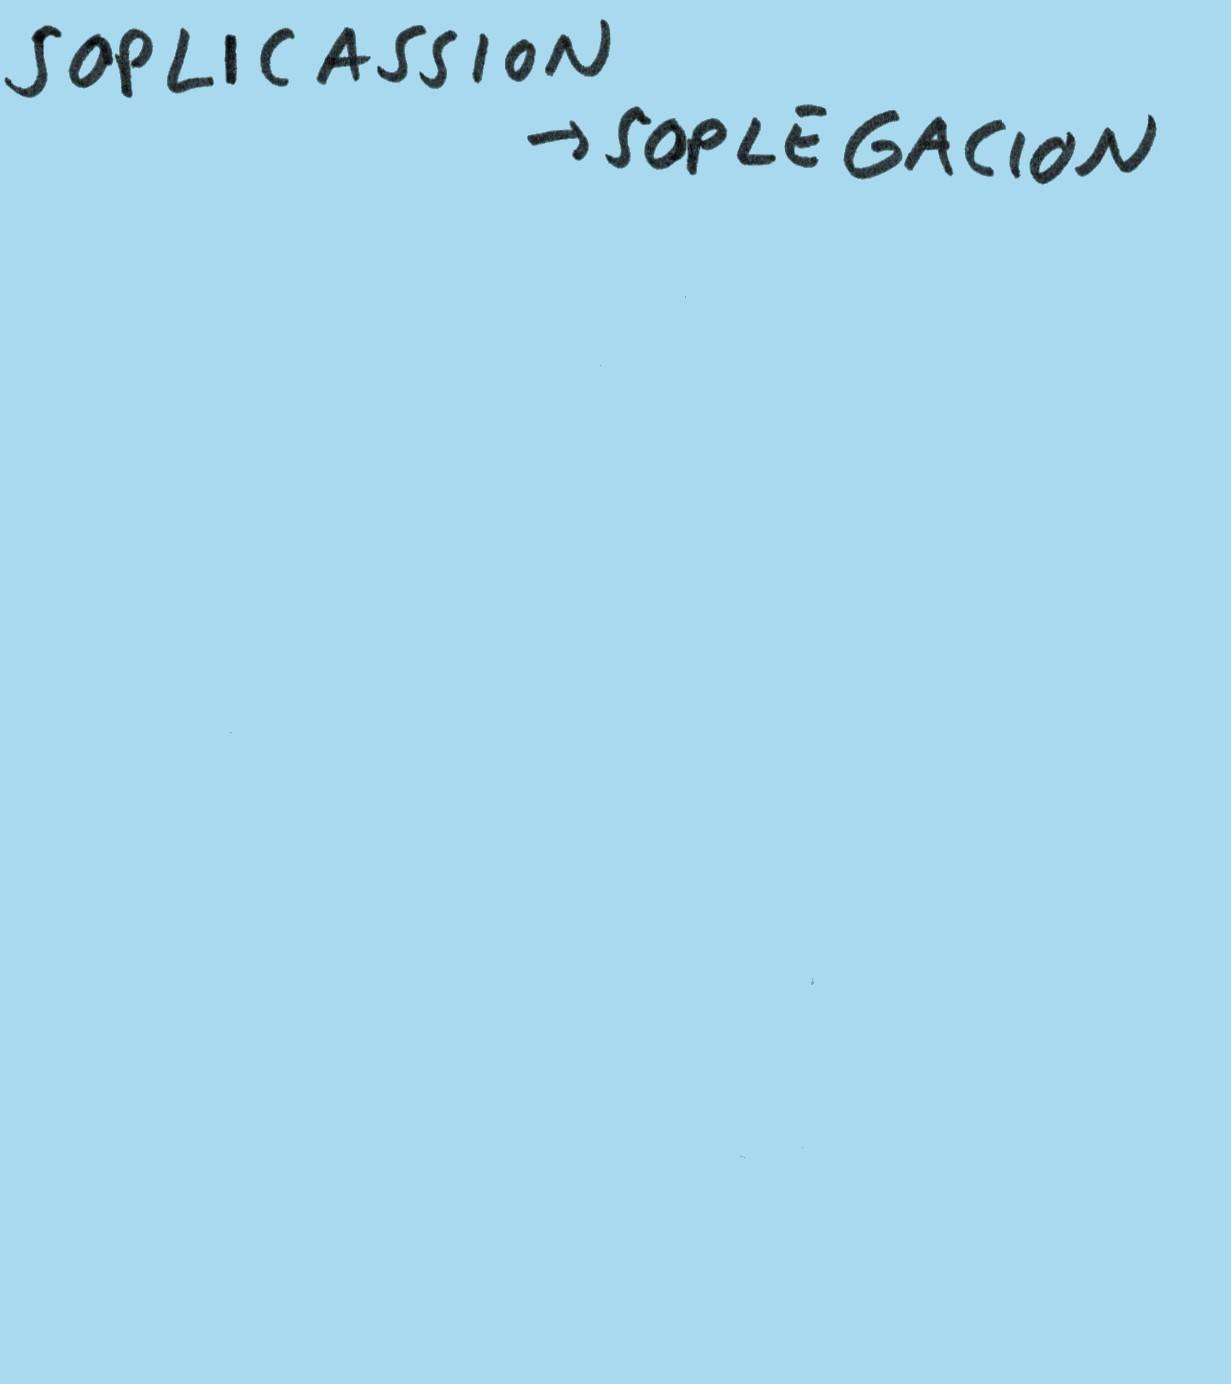 SOPLICASSION
→ SOPLEGACION